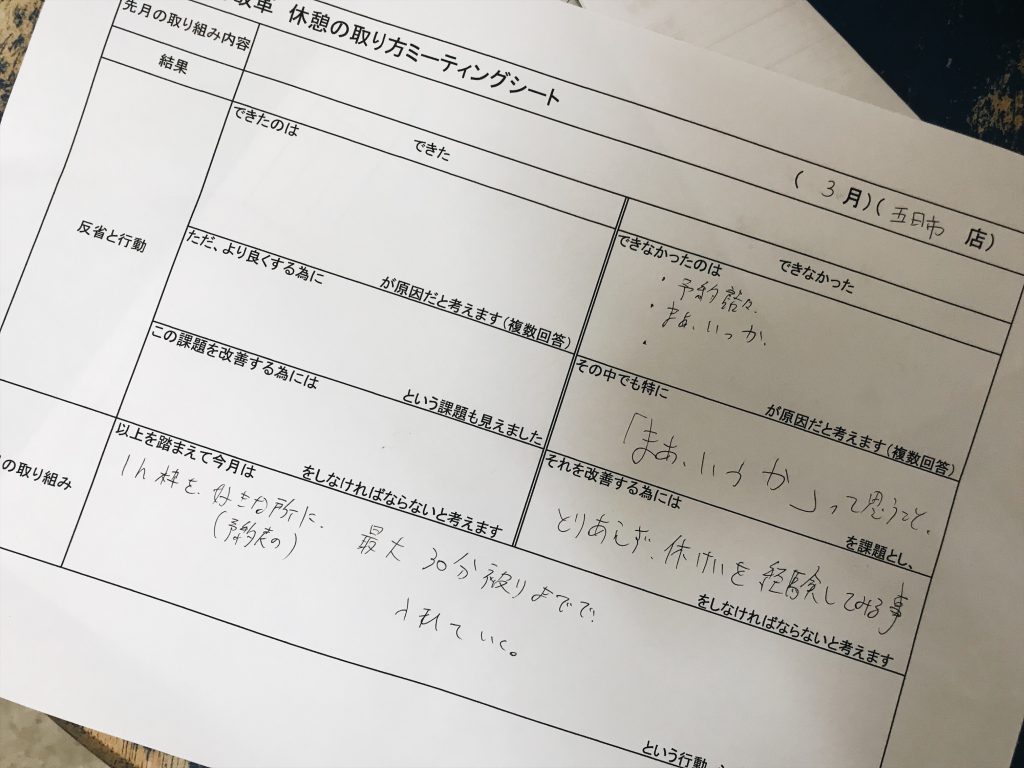 改革 休憩の取り方ミーティングシート
(3月)(五日市 店)
先月の取り組み内容
結果
できた
できなかった
反省と行動
できたのは
できなかったのは
・予約詰々.
・まぁ、いっか.
・
ただ、より良くする為に
が原因だと考えます(複数回答)
その中でも特に
が原因だと考えます(複数回答)
「まぁ、いっか」って思うこと.
この課題を改善する為には
という課題も見えました
それを改善する為には
を課題とし、
とりあえず、休けいを経験してみる事
以上を踏まえて今月は
をしなければならないと考えます
をしなければならないと考えます
の取り組み
1h枠を、好きな所に、最大30分被りまでで、
(予約表の)
入れていく。
という行動